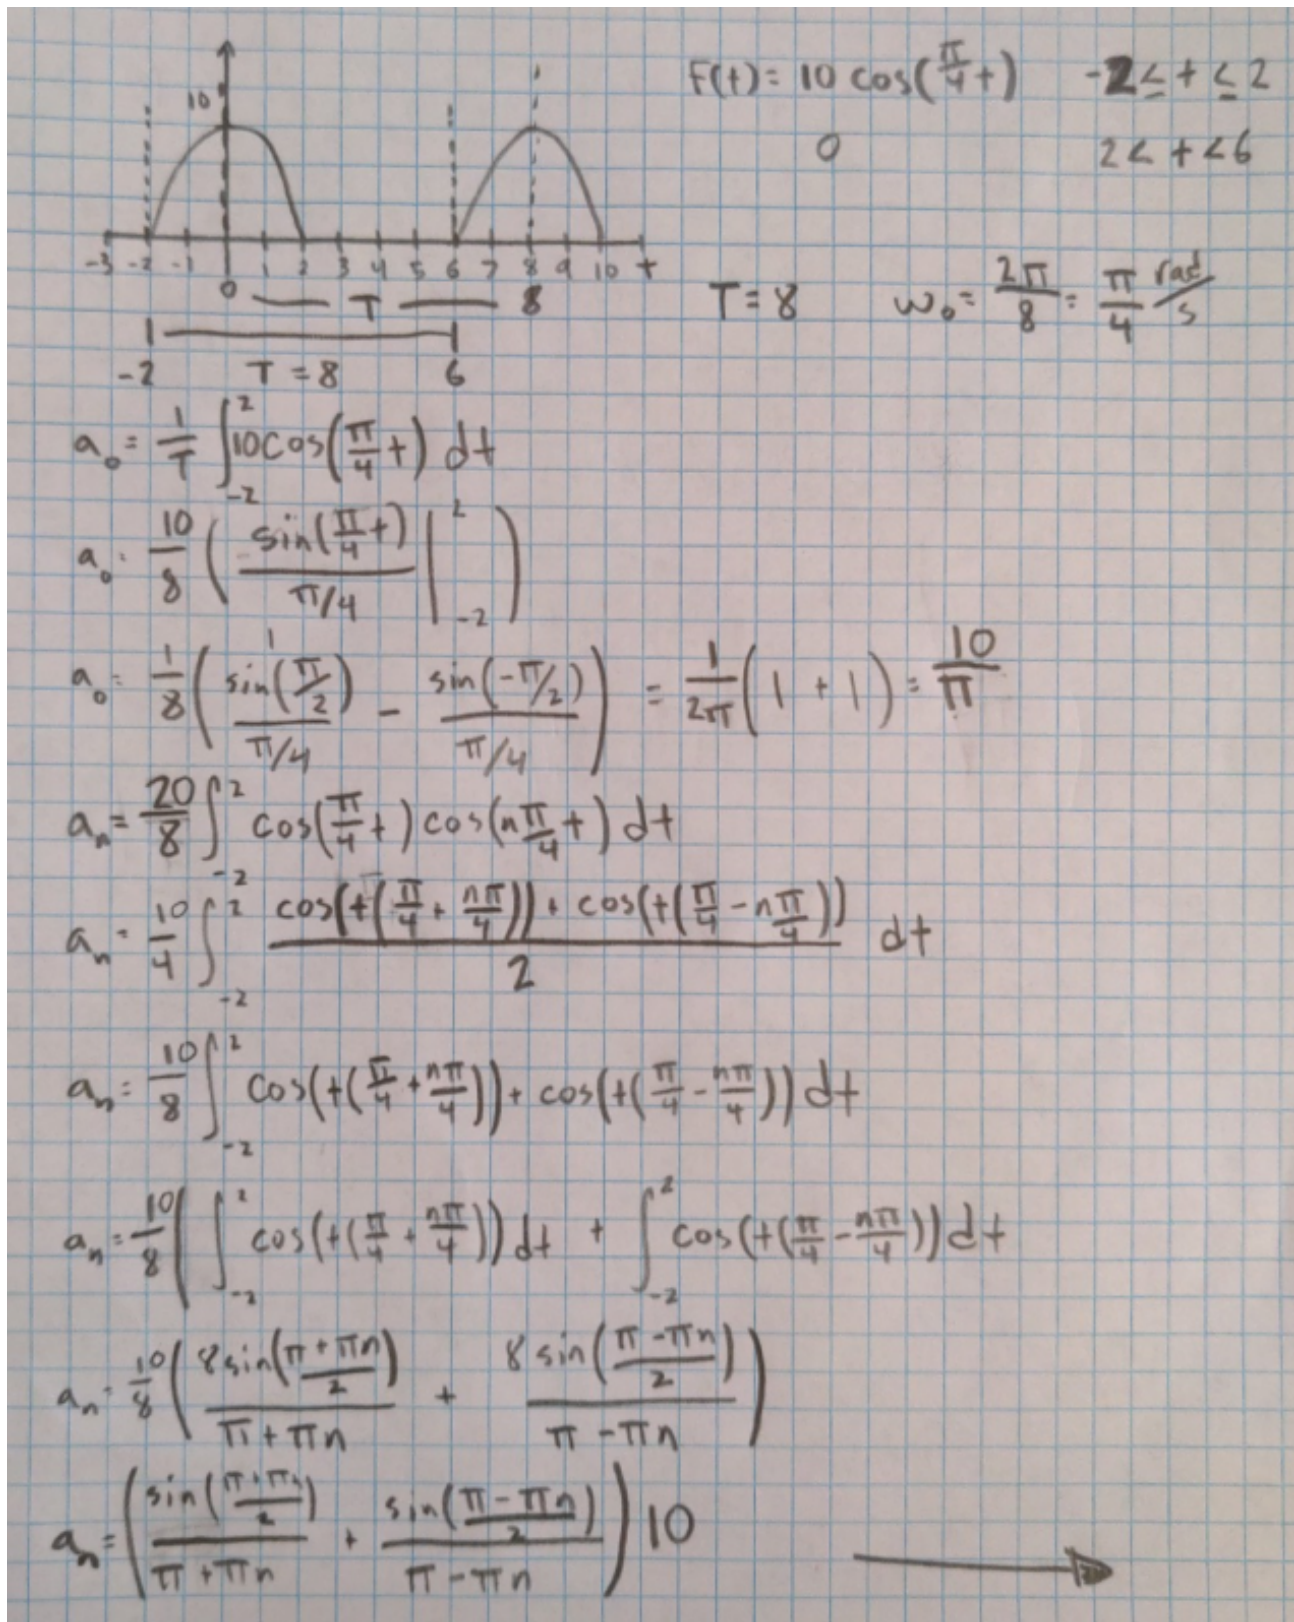 10
F(t) = 10 cos(π/4 t)   -2 ≤ t ≤ 2
0   2 < t < 6
-3 -2 -1 0 1 2 3 4 5 6 7 8 9 10 t
T 8
T = 8   ω₀ = 2π/8 = π/4 rad/s
-2   T = 8   6
a₀ = 1/T ∫_{-2}^{2} 10 cos(π/4 t) dt
a₀ = 10/8 ( sin(π/4 t) / π/4 |_{-2}^{2} )
a₀ = 1/8 ( sin(π/2) / π/4 - sin(-π/2) / π/4 ) = 1/2π (1 + 1) = 10/π
aₙ = 20/8 ∫_{-2}^{2} cos(π/4 t) cos(nπ/4 t) dt
aₙ = 10/4 ∫_{-2}^{2} (cos(t(π/4 + nπ/4)) + cos(t(π/4 - nπ/4))) / 2 dt
aₙ = 10/8 ∫_{-2}^{2} cos(t(π/4 + nπ/4)) + cos(t(π/4 - nπ/4)) dt
aₙ = 10/8 ( ∫_{-2}^{2} cos(t(π/4 + nπ/4)) dt + ∫_{-2}^{2} cos(t(π/4 - nπ/4)) dt
aₙ = 10/8 ( 8 sin((π + πn)/2) / (π + πn) + 8 sin((π - πn)/2) / (π - πn) )
aₙ = ( sin((π + πn)/2) / (π + πn) + sin((π - πn)/2) / (π - πn) ) 10